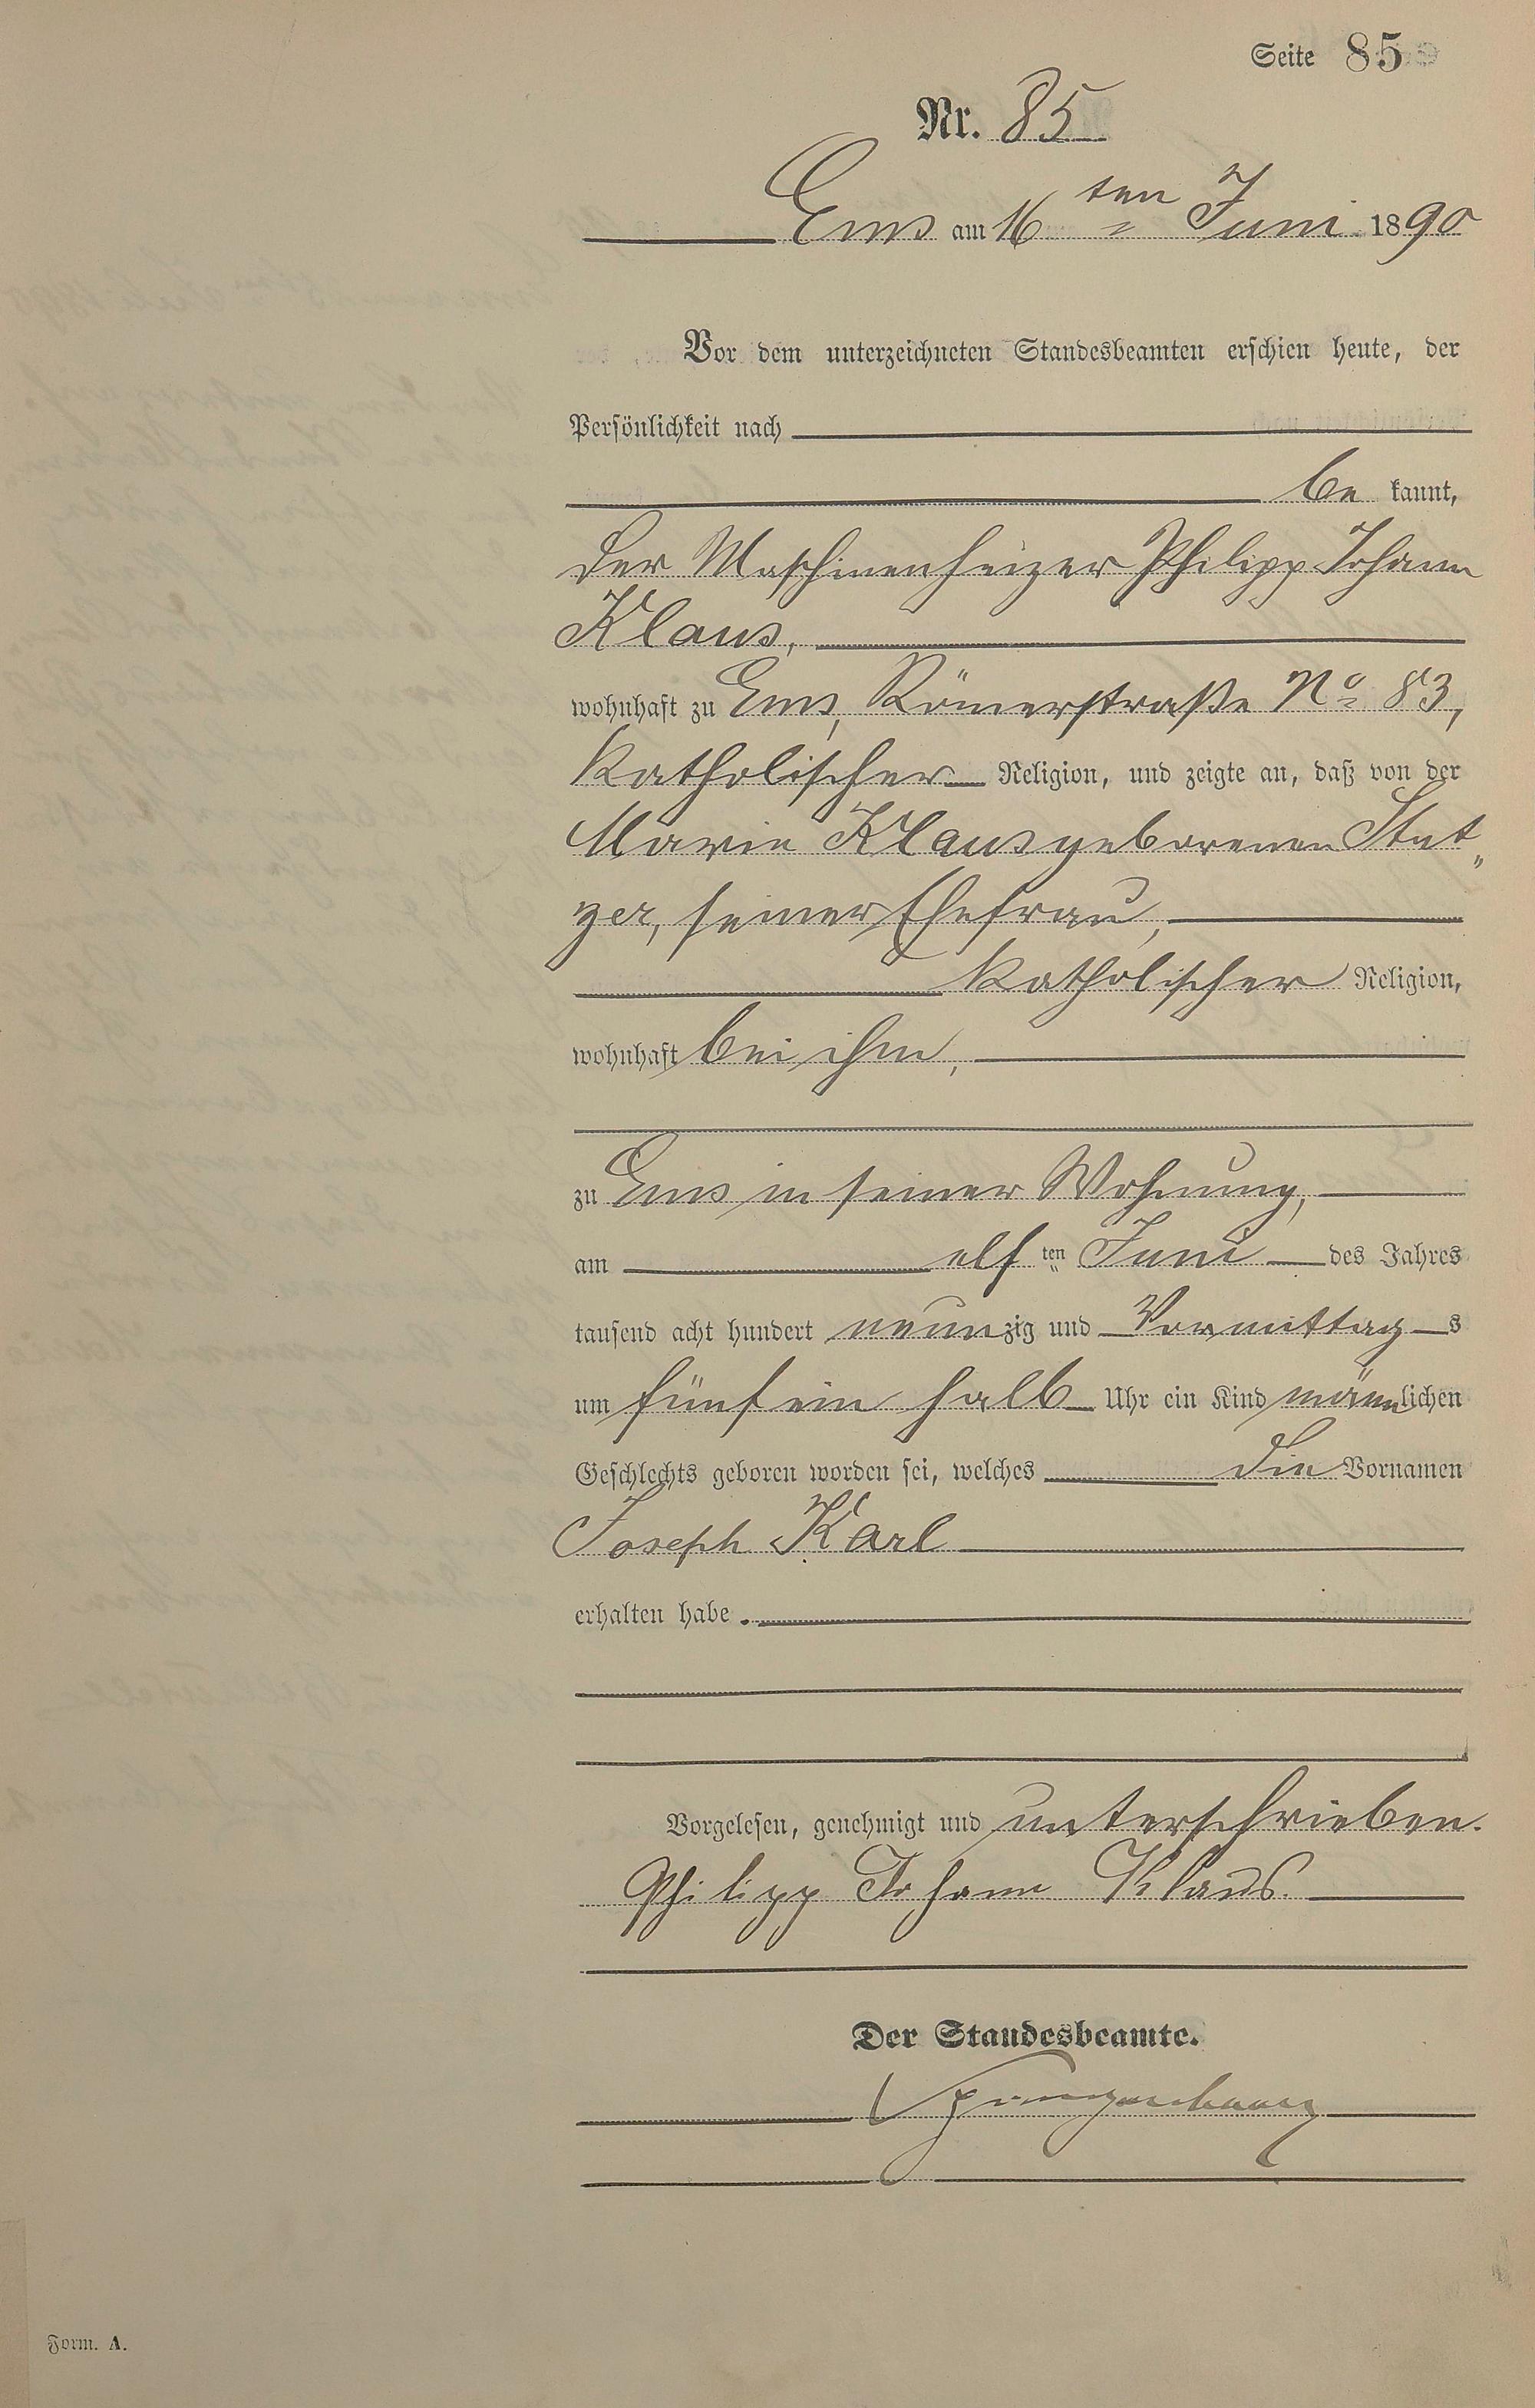 Seite 85
Nr. 85
Ems am 16ten Juni 1890
Vor dem unterzeichneten Standesbeamten erschien heute, der
Persönlichkeit nach
be kannt,
der Maschinenheizer Philipp Johann
Klaus,
wohnhaft zu Ems, Römerstraße No 83,
katholischer Religion, und zeigte an, daß von der
Marie Klaus geborenen Stut„
zer, seiner Ehefrau,
katholischer Religion,
wohnhaft bei ihm,
zu Ems in seiner Wohnung,
am elf ten Juni des Jahres
tausend acht hundert neunzig und Vormittags
um fünf ein halb Uhr ein Kind männlichen
Geschlechts geboren worden sei, welches die Vornamen
Joseph Karl
erhalten habe.
Vorgelesen, genehmigt und unterschrieben.
Philipp Johann Klaus.
Der Standesbeamte.
Form. A.